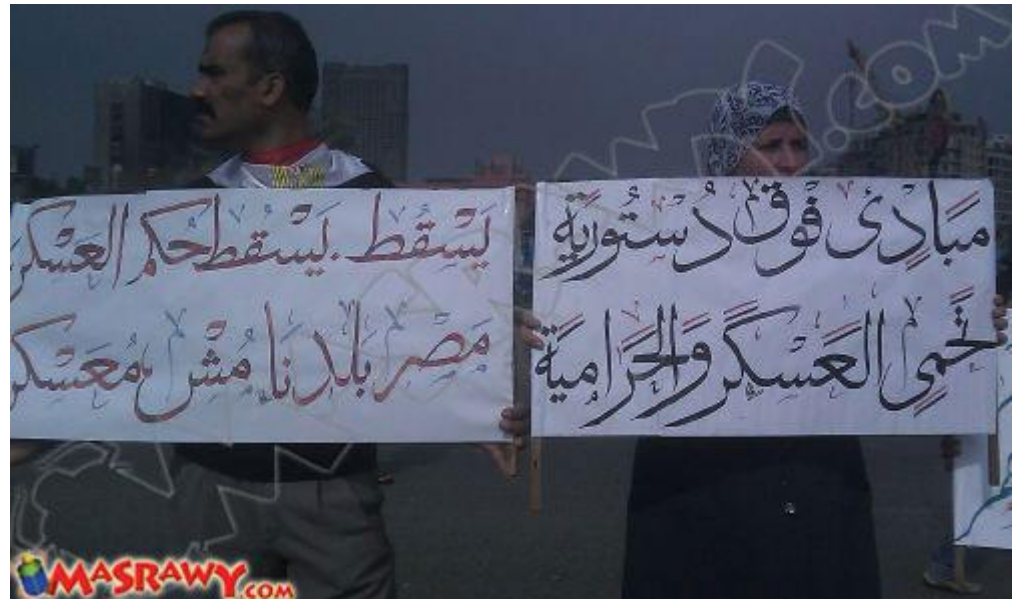 مَبَادِئ فَوْق دُسْتُورِيَّة
تَحْمِي العَسْكَر وَالحَرَامِيَّة
يَسْقُط . يَسْقُط حُكْم العَسْكَر
مَصْر بَلَدنَا مُش مُعَسْكَر
MASRAWY.COM